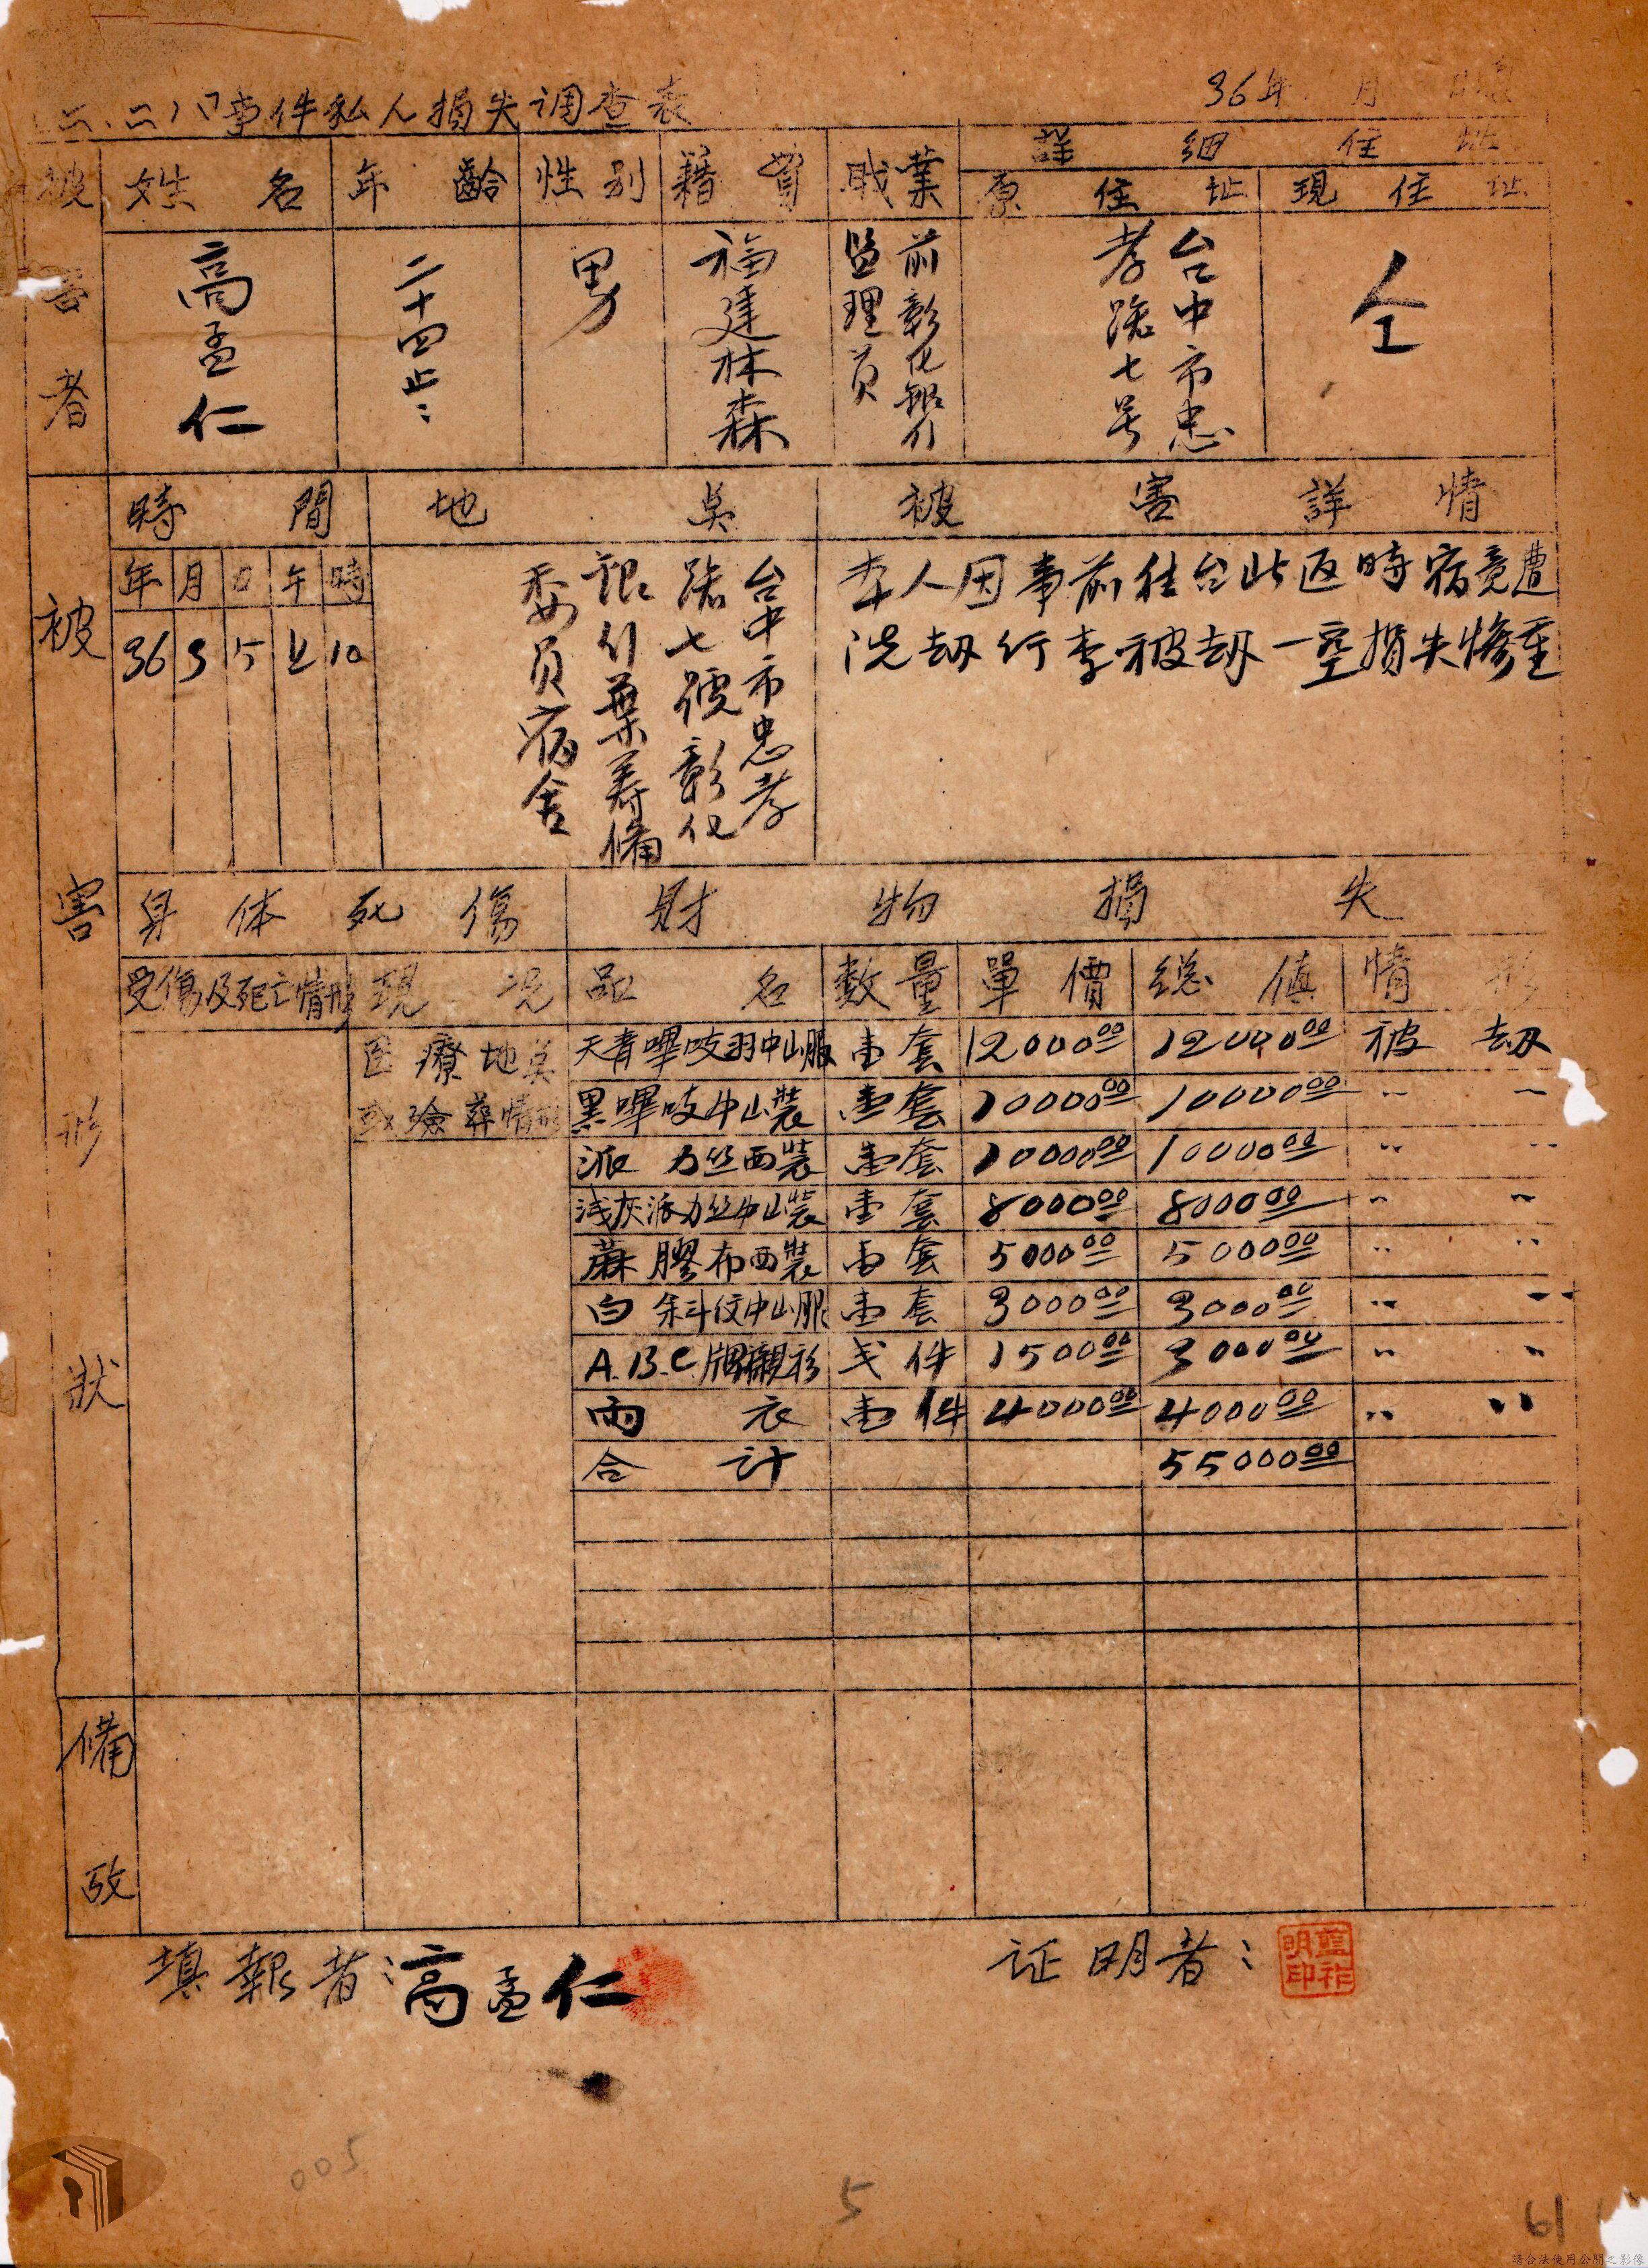 二、二八事件私人損失調查表
36年 月 日
被害者
姓名 年齡 性別 籍貫 職業 詳細住址
原住址 現住址
高孟仁
二十四歲
男
福建林森
前彰化銀行
監理員
台中市忠
孝路七号
仝
被害形狀
時間 地點 被害詳情
年 月 日 午 時
36 3 5 上 10
台中市忠孝
路七號彰化
銀行葉壽備
委員宿舍
本人因事前往台北返時宿竟遭
洗劫行李被劫一空損失慘重
身体死傷 財物損失
受傷及死亡情形 現況 品名 數量 單價 總値 情形
医療地點
或殮葬情形
天青嗶吱羽中山服 壹套 12000.00 12000.00 被劫
黑嗶吱中山裝 壹套 10000.00 10000.00 〃 〃
派力丝西裝 壹套 10000.00 10000.00 〃 〃
浅灰派力丝中山裝 壹套 8000.00 8000.00 〃 〃
蔴膠布西裝 壹套 5000.00 5000.00 〃 〃
白斜纹中山服 壹套 3000.00 3000.00 〃 〃
A.B.C.牌襯衫 弍件 1500.00 3000.00 〃 〃
雨衣 壹件 4000.00 4000.00 〃 〃
合計 55000.00
備攷
填報者：高孟仁
证明者：
明印
005
5
61
請合法使用公開之影像